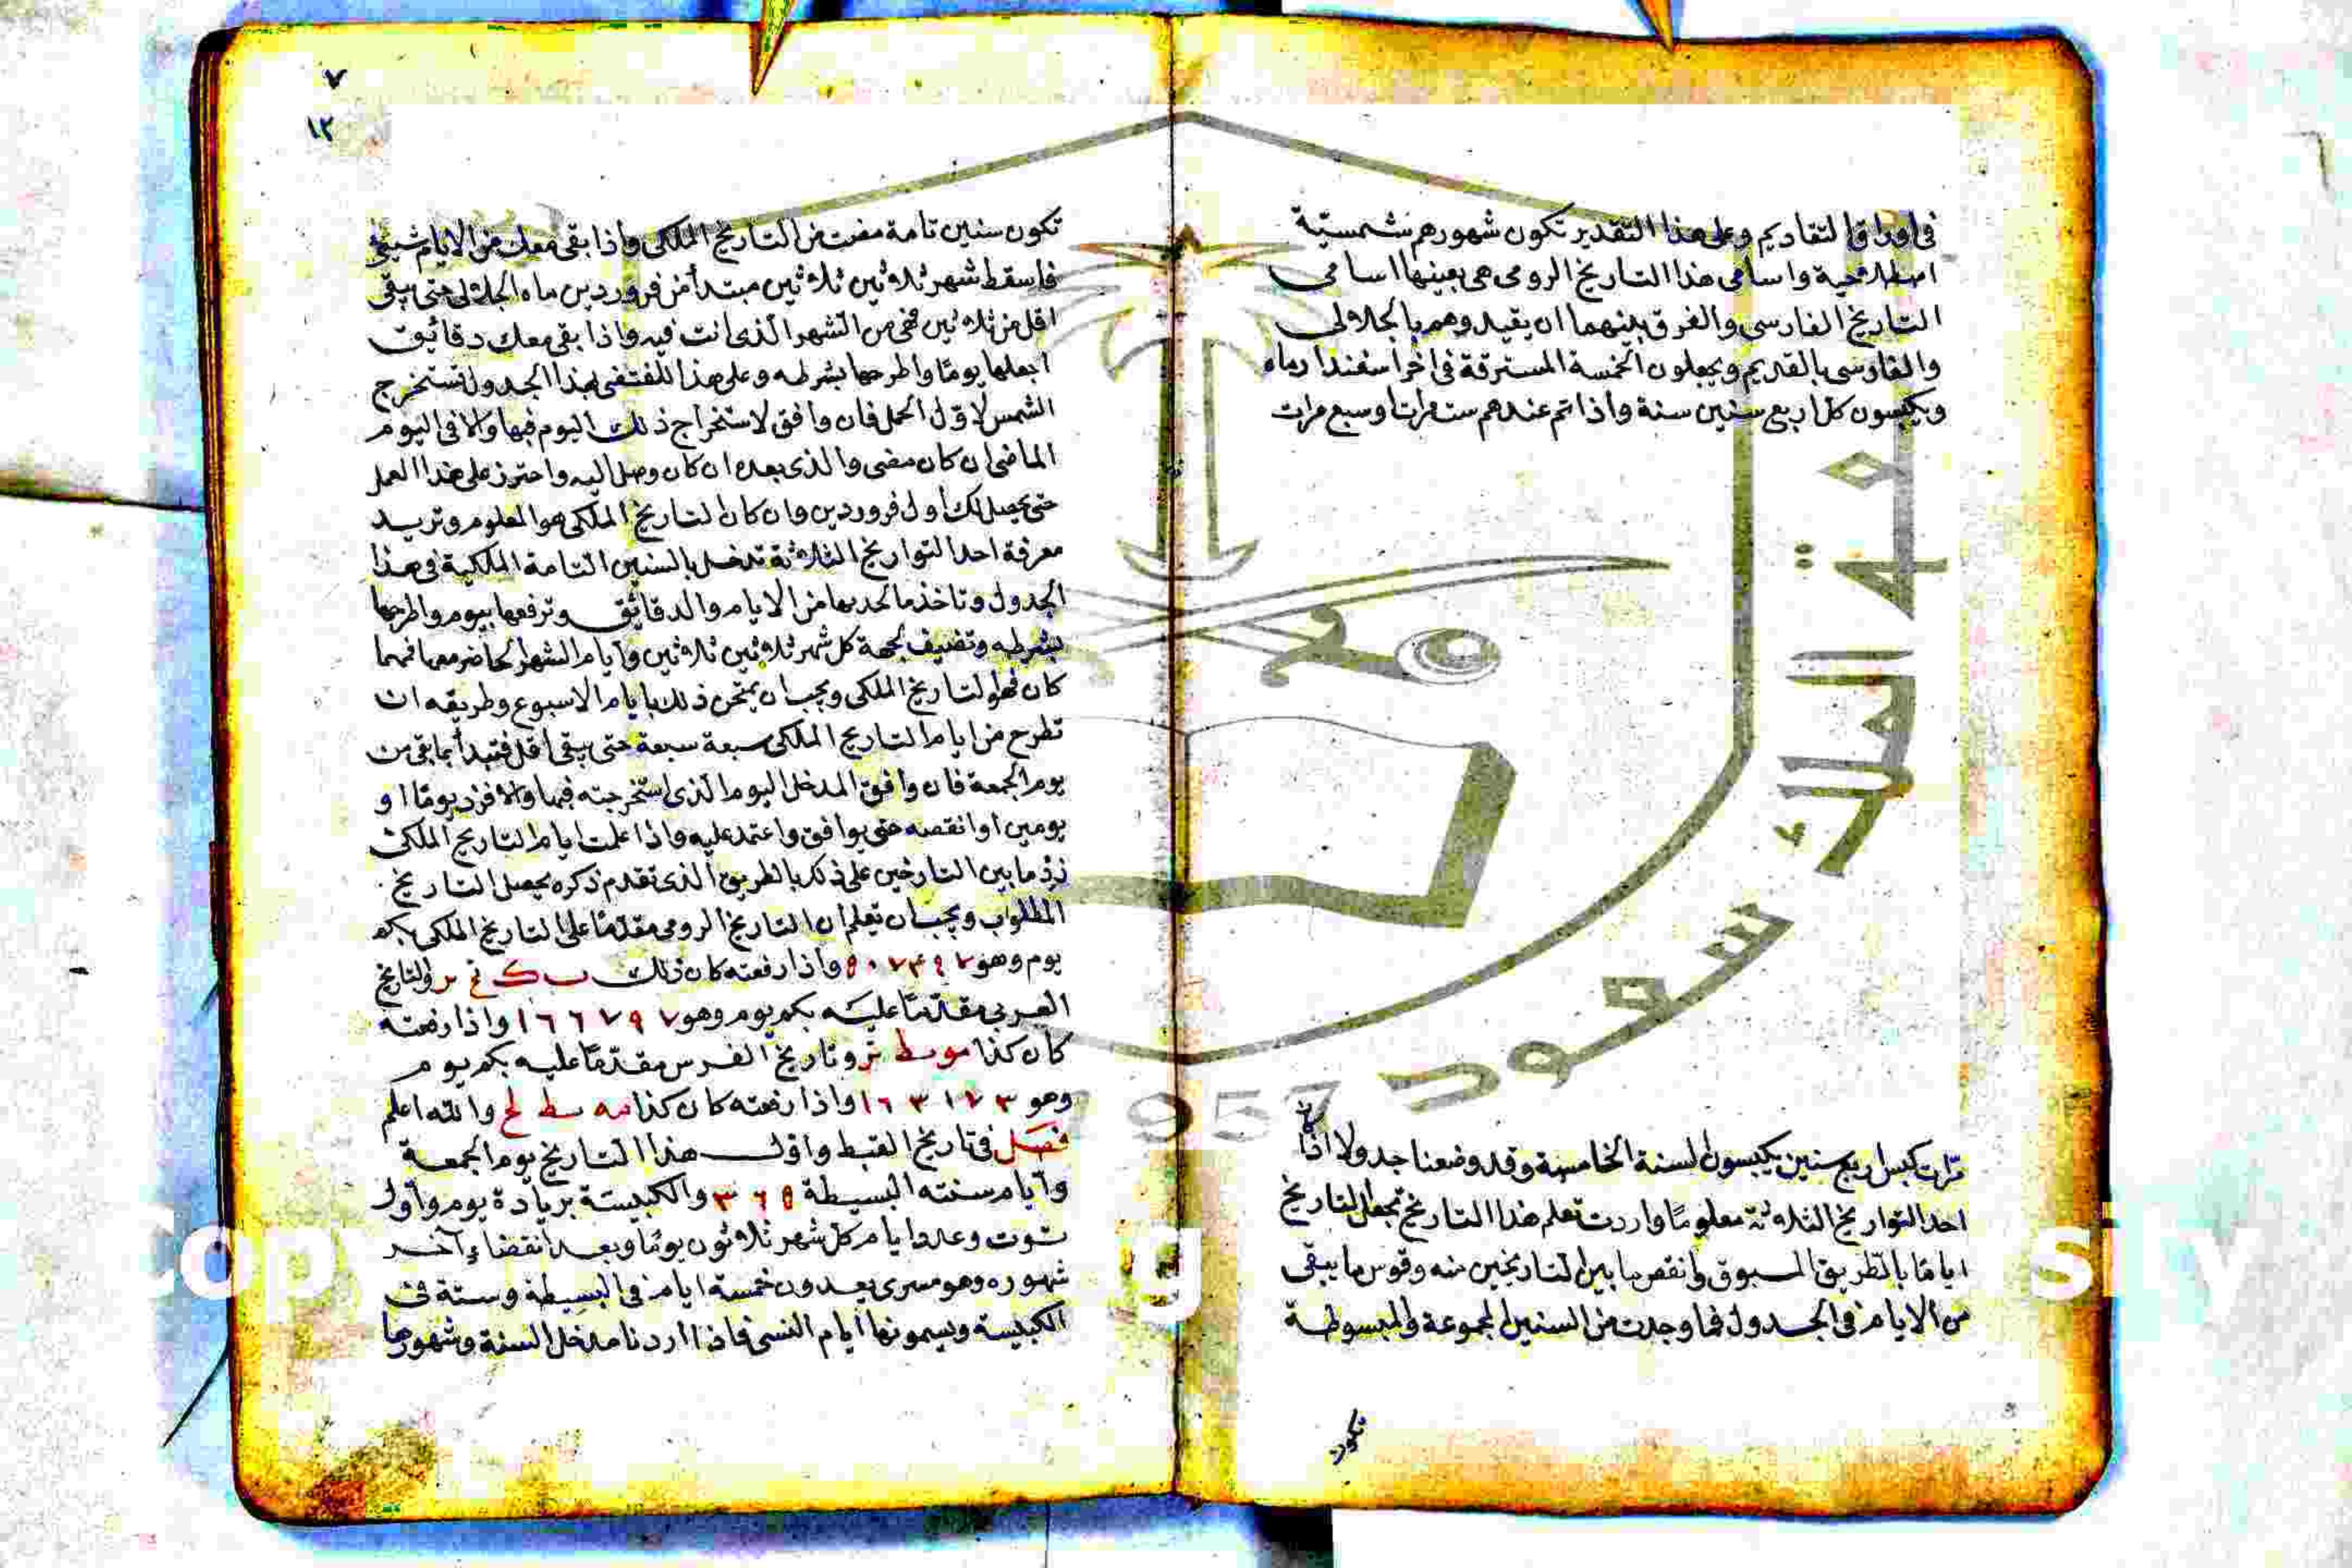 في اوراق التقاديم وعلى هذا التقدير تكون شهورهم شمسية
اصطلاحية واسامي هذا التاريخ الرومي هي بعينها اسامي
التاريخ الفارسي والفرق بينهما ان يقيدوهم بالجلالي
والفارسي بالقديم ويجعلون الخمسة المسترقة في اخر اسفندارماه
ويكبسون كل اربع سنين سنة واذا تم عندهم ست مرات او سبع مرات
مرات كبس اربع سنين يكبسون السنة الخامسة وقد وضعنا جدولا اذا
احد التواريخ الثلاثة معلوما واردت تعلم هذا التاريخ تجعل التاريخ
اياما بالطريق المسبوق وانقص ما بين التاريخين منه وقوس ما يبقى
من الايام في الجدول فما وجدت من السنين المجموعة والمبسوطة
تكون
٧
١٢
تكون سنين تامة مضت من التاريخ الملكي واذا بقى معك من الايام شيئ
فاسقط شهر ثلاثين ثلاثين مبتدأ من فروردين ماه الجلالي حتى يبقى
اقل من ثلاثين فهي من الشهر الذي انت فيه واذا بقى معك دقائق
اجعلها يوما واطرحها بشرطه وعلى هذا المقتضى بهذا الجدول تستخرج
الشمس لاول الحمل فان وافق لاستخراج ذلك اليوم فبها والا في اليوم
الماضي ان كان مضى والذي بعده ان كان وصل اليه واحترز على هذا العمل
حتى يحصل لك اول فروردين وان كان التاريخ الملكي هو المعلوم وتريد
معرفة احد التواريخ الثلاثة تدخل بالسنين التامة الملكية في هذا
الجدول وتاخذ ما تجد بها من الايام والدقائق وترفعها بيوم واطرحها
بشرطه وتضيف لجهة كل شهر ثلاثين ثلاثين وايام الشهر الحاضر معها فمهما
كان فهو التاريخ الملكي ويجب ان يمتحن ذلك بايام الاسبوع وطريقه ان
تطرح من ايام التاريخ الملكي سبعة سبعة حتى يبقى اقل فتبدأ بما بقى من
يوم الجمعة فان وافق المدخل اليوم الذي استخرجته فبها والا فزد يوما او
يومين او انقصه حتى يوافق واعتمد عليه واذا علمت ايام التاريخ الملكي
زد ما بين التارخين على ذلك بالطريق الذي تقدم ذكره يحصل التاريخ
المطلوب ويجب ان تعلم ان التاريخ الرومي مقدما على التاريخ الملكي بكم
يوم وهو ٥٠٧٤٩٧ واذا رفعته كان ذلك ب ك والتاريخ
العربي مقدما عليه بكم يوم وهو ١٦٦٧٩٧ واذا رفعته
كان كذا مو يط وتاريخ الفرس مقدما عليه بكم يوم
وهو ١٦٣١٧٣ واذا رفعته كان كذا مه يط لج والله اعلم
فصل في تاريخ القبط واول هذا التاريخ يوم الجمعة
وايام سنته البسيطة ٣٦٥ والكبيسة بزيادة يوم واول
توت وعدد ايام كل شهر ثلاثون يوما وبعد انقضاء آخر
شهوره وهو مسرى يعدون خمسة ايام في البسيطة وستة في
الكبيسة ويسمونها ايام النسي فاذا اردنا مدخل السنة وشهورها
الملك سعود
1957